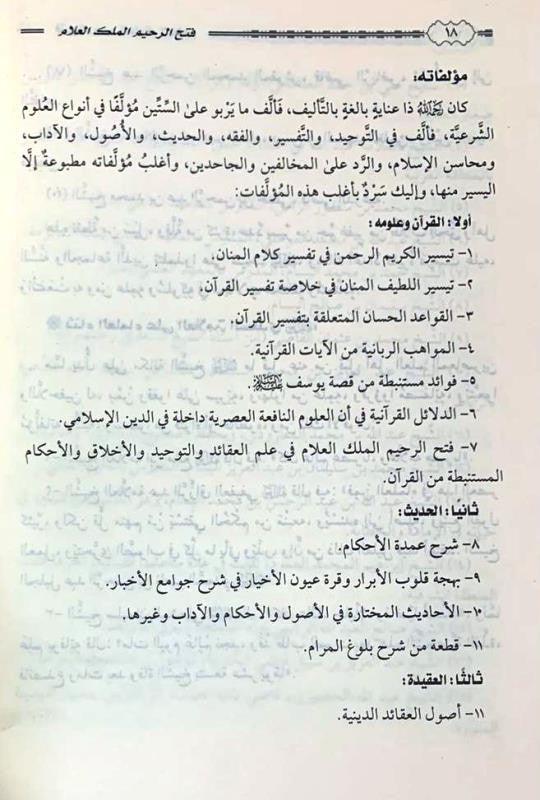 فتح الرحيم الملك العلام
١٨
مؤلفاته:
كان رَحِمَهُ اللَّهُ ذا عنايةٍ بالغةٍ بالتَّأليف، فَألَّف ما يَرْبو على السِّتِّين مُؤلَّفًا في أنواع العُلُوم
الشَّرعيَّة، فألَّف في التَّوحيد، والتَّفسير، والفقه، والحديث، والأُصُول، والآداب،
ومحاسن الإسلام، والرَّد على المخالفين والجاحدين، وأغلبُ مُؤلَّفاته مطبوعةٌ إلَّا
اليسير منها، وإليك سَرْدٌ بأغلب هذه المُؤلَّفات:
أولا: القرآن وعلومه:
١- تيسير الكريم الرحمن في تفسير كلام المنان.
٢- تيسير اللطيف المنان في خلاصة تفسير القرآن.
٣- القواعد الحسان المتعلقة بتفسير القرآن.
٤- المواهب الربانية من الآيات القرآنية.
٥- فوائد مستنبطة من قصة يوسف عليه السلام.
٦- الدلائل القرآنية في أن العلوم النافعة العصرية داخلة في الدين الإسلامي.
٧- فتح الرحيم الملك العلام في علم العقائد والتوحيد والأخلاق والأحكام
المستنبطة من القرآن.
ثانيًا: الحديث:
٨- شرح عمدة الأحكام.
٩- بهجة قلوب الأبرار وقرة عيون الأخيار في شرح جوامع الأخبار.
١٠- الأحاديث المختارة في الأصول والأحكام والآداب وغيرها.
١١- قطعة من شرح بلوغ المرام.
ثالثًا: العقيدة:
١١- أصول العقائد الدينية.